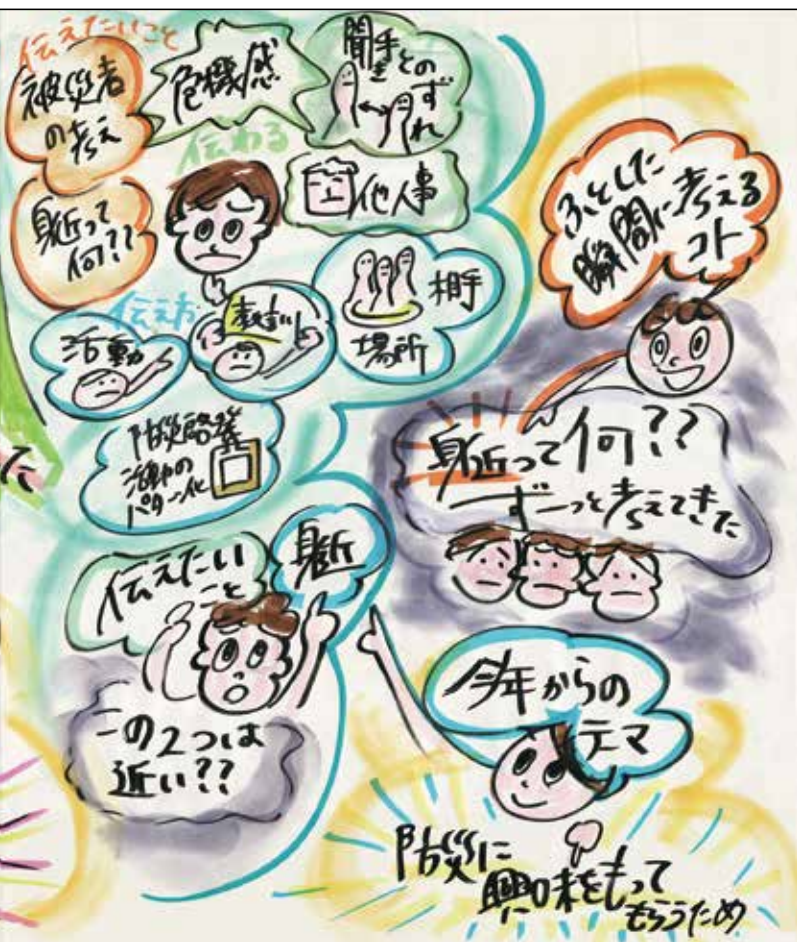 伝えたいこと
被災者
の考え
危機感
聞き手との
ずれ
伝わる
身近って
何??
他人事
伝え方
活動
相手
場所
防災啓発
活動の
パターン化
伝えたい
こと
身近
この2つは
近い??
ふとした
瞬間に考える
コト
身近って何??
ずーっと考えてきた
今年からの
テマ
防災に
興味をもって
もらうため